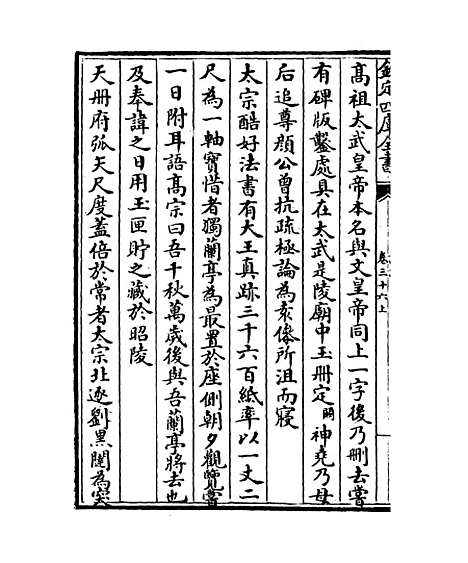 欽定四庫全書
卷三十六上
高祖太武皇帝本名與文皇帝同上一字後乃刪去嘗
有碑版鑿處具在太武是陵廟中玉冊定闕神堯乃母
后追尊顔公曾抗疏極論為袁傪所沮而寢
太宗酷好法書有大王真跡三千六百紙率以一丈二
尺為一軸寶惜者獨蘭亭為最置於座側朝夕觀覽嘗
一日附耳語高宗曰吾千秋萬歲後與吾蘭亭將去也
及奉諱之日用玉匣貯之藏於昭陵
天冊府弧矢尺度蓋倍於常者太宗北逐劉黒闥為突